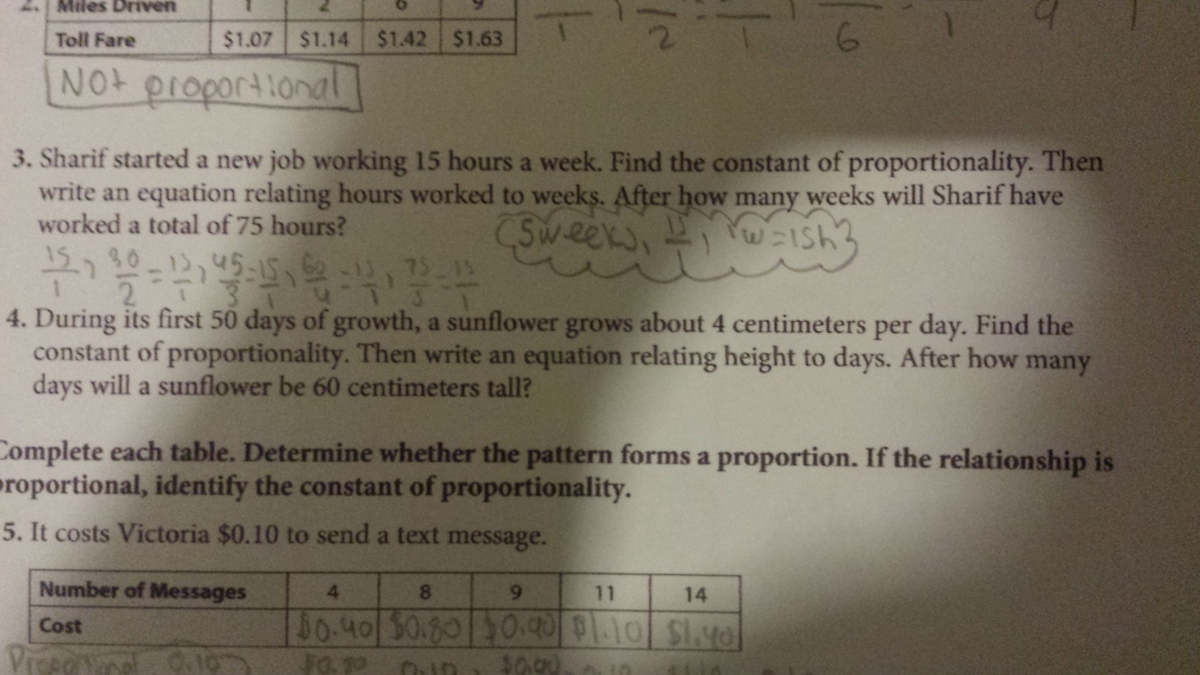 2. Miles Driven 1 2 6 9
Toll Fare $1.07 $1.14 $1.42 $1.63
1 2 1 6 1 9 1
Not proportional
3. Sharif started a new job working 15 hours a week. Find the constant of proportionality. Then
write an equation relating hours worked to weeks. After how many weeks will Sharif have
worked a total of 75 hours?
5 weeks, 15/1, w=15h
15/1, 30/2 = 15/1, 45/3 = 15/1, 60/4 = 15/1, 75/5 = 15/1
4. During its first 50 days of growth, a sunflower grows about 4 centimeters per day. Find the
constant of proportionality. Then write an equation relating height to days. After how many
days will a sunflower be 60 centimeters tall?
Complete each table. Determine whether the pattern forms a proportion. If the relationship is
proportional, identify the constant of proportionality.
5. It costs Victoria $0.10 to send a text message.
Number of Messages 4 8 9 11 14
Cost $0.40 $0.80 $0.90 $1.10 $1.40
Proportional 0.10